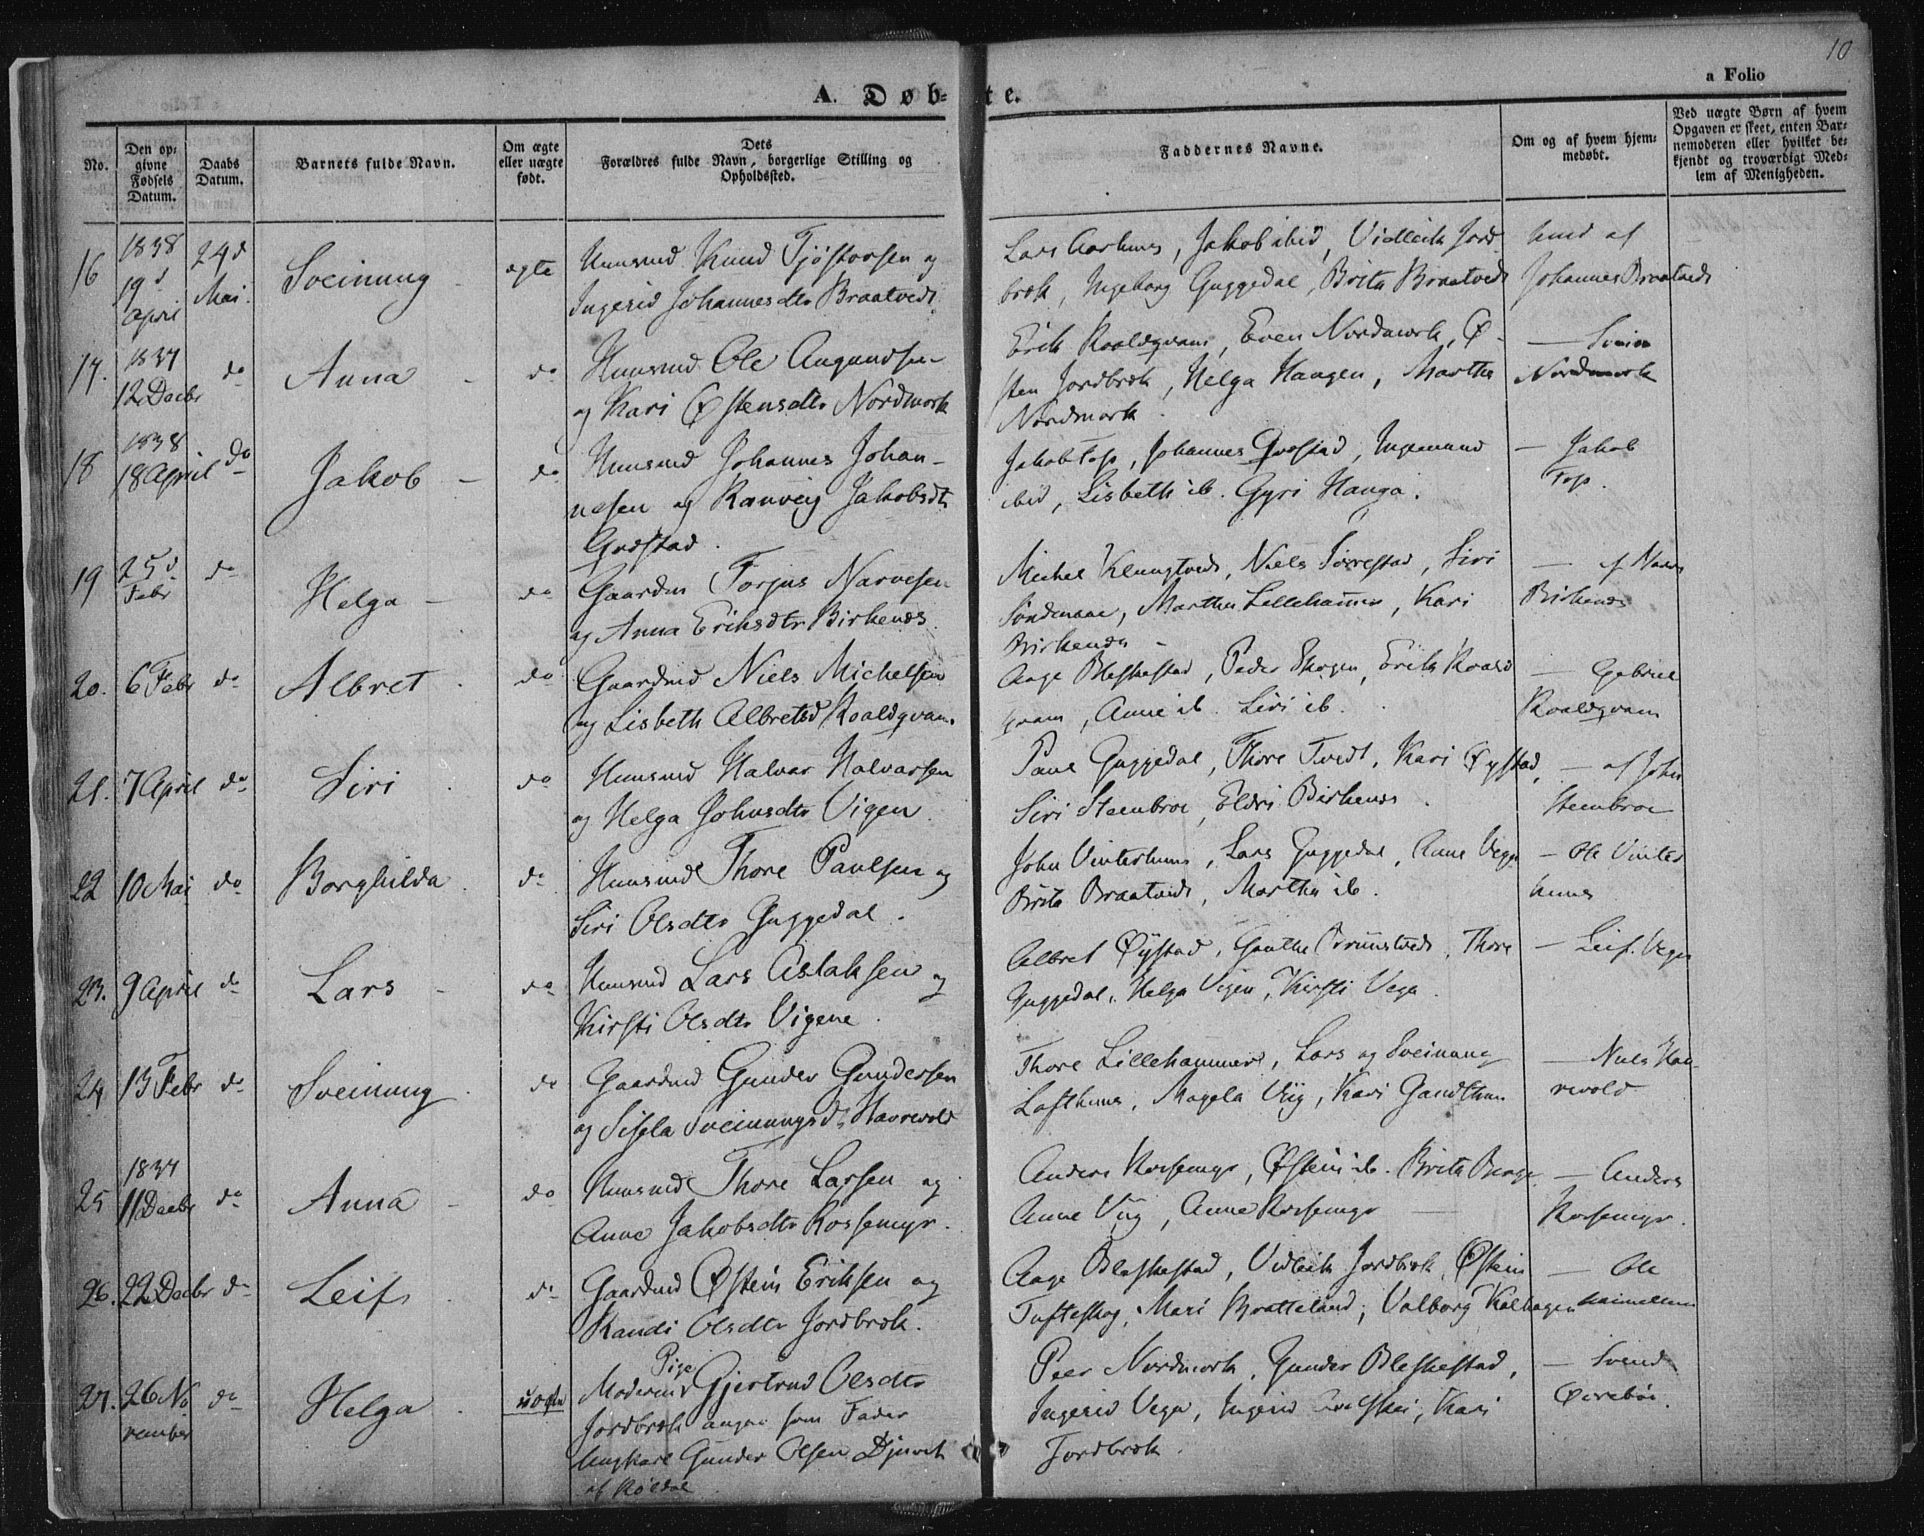 10
A. Døb-
te.
a Folio
No.
Den op-
givne
Fødsels
Datum.
Daabs
Datum.
Barnets fulde Navn.
Om ægte
eller uægte
født.
Dets
Forældres fulde Navn, borgerlige Stilling og
Opholdssted.
Faddernes Navne.
Om og af hvem hjem-
medøbt.
Ved uægte Børn af hvem
Opgaven er skeet, enten Bar-
nemoderen eller hvilket be-
kjendt og troværdigt Med-
lem af Menigheden.
16
1838
19d
April
24d
Mai
Sveinung
ægte
Huusmd Knud Tjøstorsen og
Ingerid Johannesdtr Braatvedt.
Lars Aarhuus, Jakob ibid, Vidleik Jord
bræk, Ingeborg Guggedal, Brita Braatvedt
hmd af
Johannes Braatvedt
17.
1837
12 Decbr
do
Anna
do
Huusmd Ole Aagundsen
og Kari Østensdtr Nordmork
Erik Roaldqvam, Even Nordmork, Ø-
sten Jordbræk, Helga Haugen, Martha
Nordmork
— Svein
Nordmork
18
1838
18 April
do
Jakob
do
Huusmd Johannes Johan-
nesen og Ranveig Jakobsdt
Qvostad.
Jakob Top, Johannes Qvostad, Ingemund
ibid, Lisbeth ib. Gyri Hauga.
— Jakob
Top.
19
25d
Febr
do
Helga
do
Gaardm Torjus Narvesen
og Anna Eriksdtr Birkenæs
Michel Klungtvedt, Niels Tørrestad, Siri
Søndenaae, Martha Lillehammer, Kari
Birkenæs
— af
Birkenæs
20.
6 Febr
do
Albret
do
Gaardmd Niels Michelsen
og Lisbeth Albretsd Roaldqvam.
Aage Bleskestad, Peder Skogen, Erik Roald
qvam, Anne ib. Siri ib.
— Gabriel
Roaldqvam
21.
7 April
do
Siri
do
Huusmd Halvar Halvarsen
og Helga Johnsdtr Vigen
Paul Guggedal, Thore Tvedt, Kari Øystad,
Siri Steenbroe, Eldri Birkenæs.
— af John
Steenbroe
22
10 Mai
do
Borghilda
do
Huusmd Thore Paulsen og
Siri Olsdtr Guggedal.
John Vinterhuus, Lars Guggedal, Anne Vega
Brita Braatvedt, Martha ib.
— Ole Vinter
huus
23.
9 April
do
Lars
do
Huusmd Lars Aslaksen og
Kirsti Olsdtr Vigene.
Albret Øystad, Gauthe Brunstvedt, Thore
Guggedal, Helga Vigen, Kirsti Vega
— Leif Vega
24
13 Febr
do
Sveinung
do
Gaardmd Gunder Gundersen
og Sissela Sveinungsdtr Havrevold
Thore Lillehammer, Lars og Sveinung
Lofthuus, Magela Viig, Kari Gaudthun
— Niels Hav-
revold
25
1837
11 Decbr
do
Anna
do
Huusmd Thore Larsen og
Anne Jakobsdtr Rossemyr.
Anders Rossemyr, Østein ib. Brita Berge
Anne Viig, Anne Rossemyr
— Anders
Rossemyr.
26.
22 Decbr
do
Leif
do
Gaardmd Østein Eriksen og
Randi Olsdtr Jordbræk.
Aage Bleskestad, Vidleik Jordbræk, Østein
Tufteskog, Mari Bratteland, Valborg Kolhagen
— Ole
27.
26 No
vember
do
Helga
uægte
Moderen Pige Gjertrud Olsdtr
Jordbræk angav som Fader
Ungkarl Gunder Olsen Djuvek
af Røldal
Peer Nordmork, Gunder Bleskestad,
Ingerid Vega, Ingerid, Kari
Jordbræk.
— Svend
Øverbøe.